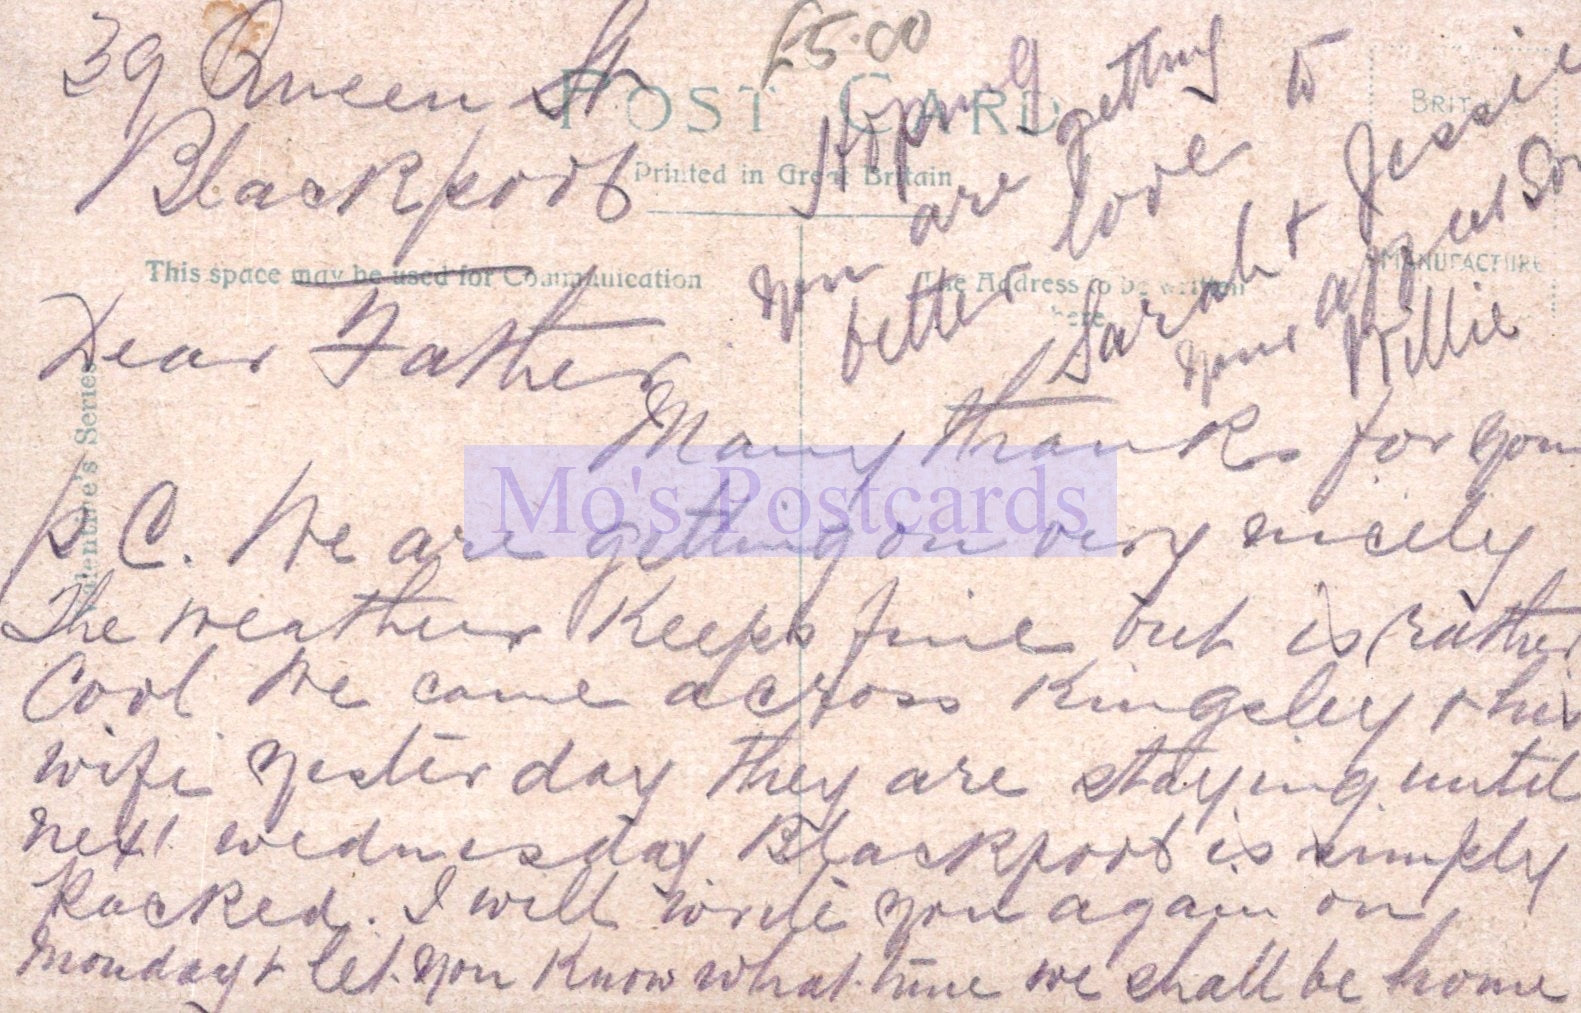 £5.00
39 Queen St
Blackpool
POST CARD
Printed in Great Britain
BRIT
MANUFACTURE
This space may be used for Communication
The Address to be written
here
Valentine's Series
Dear Father
Many thanks for your
p C. We are getting on very nicely
The weather keeps fine but is rather
Cool We came across Kingsley & his
wife yesterday they are staying until
next wednesday Blackpool is simply
Packed. I will write you again on
Monday & let you know what time we shall be home
Hoping
you are getting
better love to
Sarah & Jessie
your affect Son
Willie
Mo's Postcards